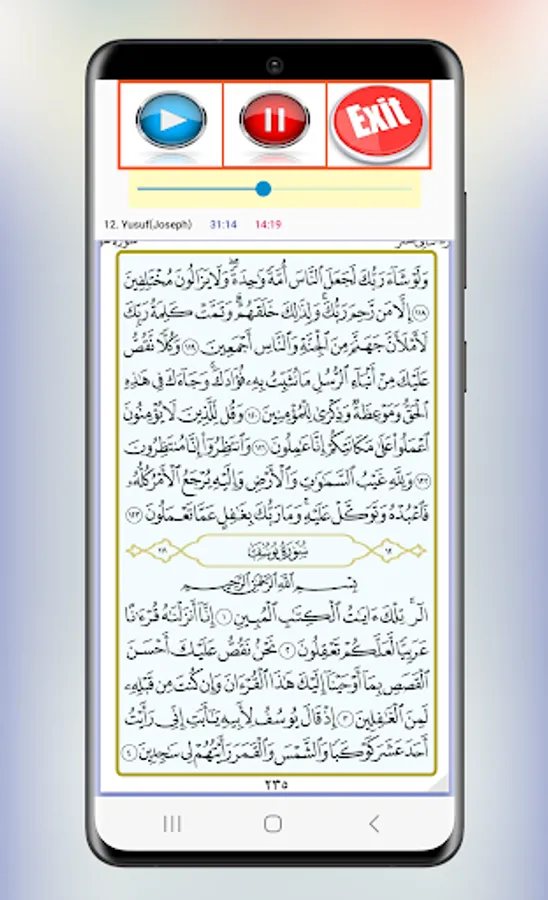 Exit
12. Yusuf(Joseph) 31:14 14:19
وَلَوْ شَآءَ رَبُّكَ لَجَعَلَ ٱلنَّاسَ أُمَّةً وَٰحِدَةً ۖ وَلَا يَزَالُونَ مُخْتَلِفِينَ
﴿١١٨﴾ إِلَّا مَن رَّحِمَ رَبُّكَ ۚ وَلِذَٰلِكَ خَلَقَهُمْ ۗ وَتَمَّتْ كَلِمَةُ رَبِّكَ
لَأَمْلَأَنَّ جَهَنَّمَ مِنَ ٱلْجِنَّةِ وَٱلنَّاسِ أَجْمَعِينَ ﴿١١٩﴾ وَكُلًّا نَّقُصُّ
عَلَيْكَ مِنْ أَنۢبَآءِ ٱلرُّسُلِ مَا نُثَبِّتُ بِهِۦ فُؤَادَكَ ۚ وَجَآءَكَ فِى هَٰذِهِ
ٱلْحَقُّ وَمَوْعِظَةٌ وَذِكْرَىٰ لِلْمُؤْمِنِينَ ﴿١٢٠﴾ وَقُل لِّلَّذِينَ لَا يُؤْمِنُونَ
ٱعْمَلُوا۟ عَلَىٰ مَكَانَتِكُمْ إِنَّا عَٰمِلُونَ ﴿١٢١﴾ وَٱنتَظِرُوٓا۟ إِنَّا مُنتَظِرُونَ
﴿١٢٢﴾ وَلِلَّهِ غَيْبُ ٱلسَّمَٰوَٰتِ وَٱلْأَرْضِ وَإِلَيْهِ يُرْجَعُ ٱلْأَمْرُ كُلُّهُۥ
فَٱعْبُدْهُ وَتَوَكَّلْ عَلَيْهِ ۚ وَمَا رَبُّكَ بِغَٰفِلٍ عَمَّا تَعْمَلُونَ ﴿١٢٣﴾
سُورَةُ يُوسُفَ
بِسْمِ ٱللَّهِ ٱلرَّحْمَٰنِ ٱلرَّحِيمِ
الٓر ۚ تِلْكَ ءَايَٰتُ ٱلْكِتَٰبِ ٱلْمُبِينِ ﴿١﴾ إِنَّآ أَنزَلْنَٰهُ قُرْءَٰنًا
عَرَبِيًّا لَّعَلَّكُمْ تَعْقِلُونَ ﴿٢﴾ نَحْنُ نَقُصُّ عَلَيْكَ أَحْسَنَ
ٱلْقَصَصِ بِمَآ أَوْحَيْنَآ إِلَيْكَ هَٰذَا ٱلْقُرْءَانَ وَإِن كُنتَ مِن قَبْلِهِۦ
لَمِنَ ٱلْغَٰفِلِينَ ﴿٣﴾ إِذْ قَالَ يُوسُفُ لِأَبِيهِ يَٰٓأَبَتِ إِنِّى رَأَيْتُ
أَحَدَ عَشَرَ كَوْكَبًا وَٱلشَّمْسَ وَٱلْقَمَرَ رَأَيْتُهُمْ لِى سَٰجِدِينَ ﴿٤﴾
٢٣٥